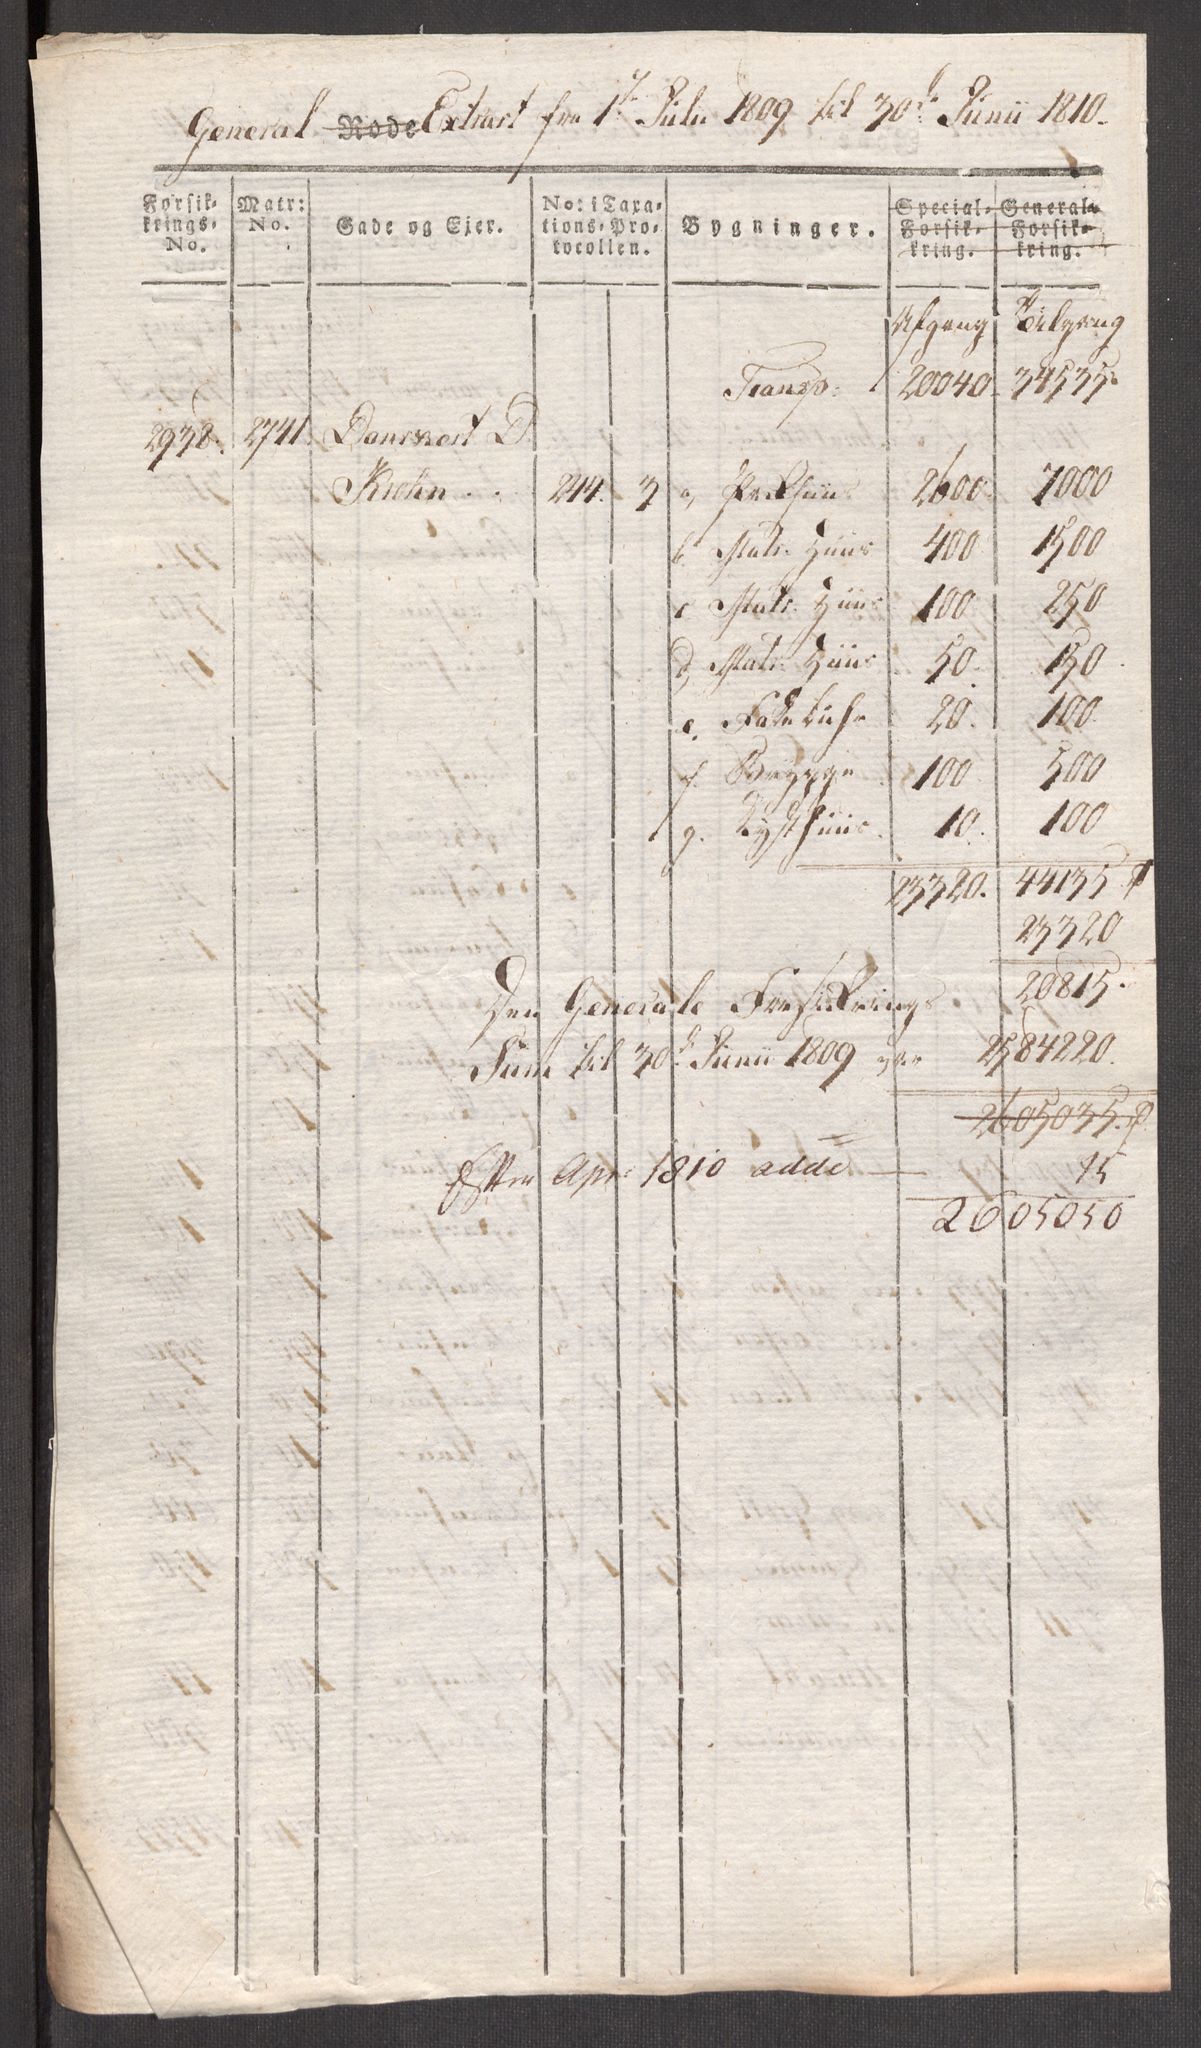 General Rode Extract fra 1ste Julii 1809 til 30te Junii 1810.
Forsikkrings-No. Matr: No. Gade og Ejer. No: i Taxations-Protocollen. Bygninger. Special-Forsikkring. General-Forsikkring.
Afgang Tilgang
Transp. 20040. 34535
2938. 2741. Danckert D.
Krohn 244. 3 a, Pakhuus 2600. 7000
b. Matr. Huus 400 1500
c. Matr. Huus 100 250
d, Matr. Huus 50. 150.
e. 20. 100.
f. Brygge 100 500
g. Lysthuus. 10. 100
23320. 44135
23320
20815.
Den Generale Forsikrings
Sum til 30te Junii 1809 var 2584220.
2605035.
Efter Apr. 1810 adde 15
2605050